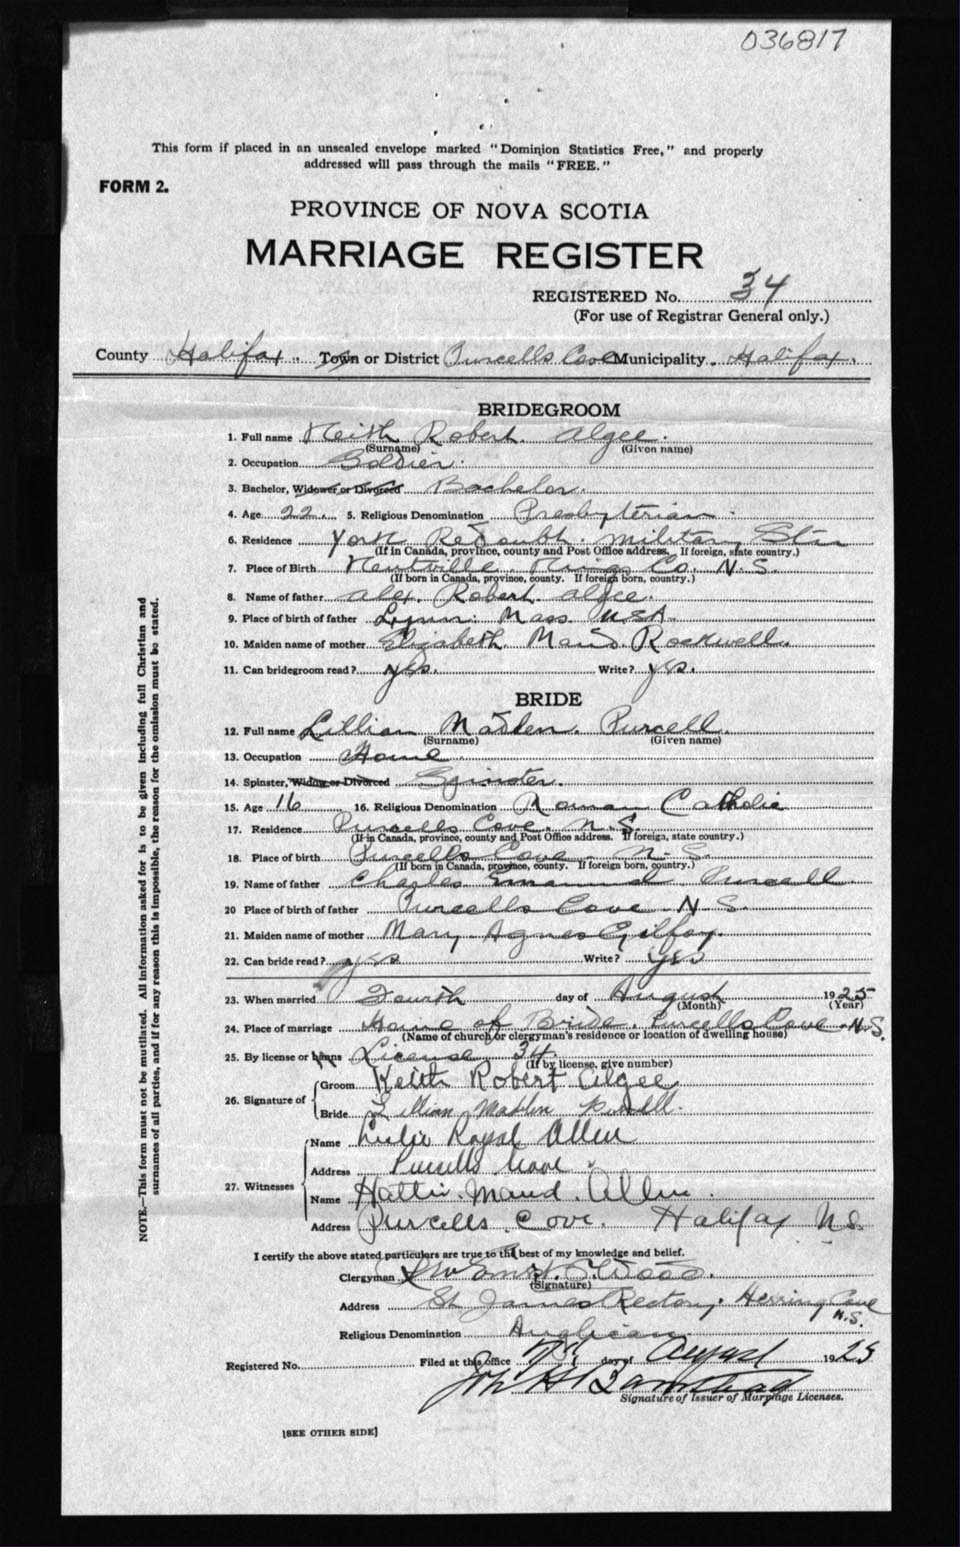 036817
This form if placed in an unsealed envelope marked "Dominion Statistics Free," and properly
addressed will pass through the mails "FREE."
FORM 2.
PROVINCE OF NOVA SCOTIA
MARRIAGE REGISTER
REGISTERED No. 34
(For use of Registrar General only.)
County Halifax Town or District Purcells Cove Municipality Halifax
BRIDEGROOM
1. Full name Keith Robert Algee.
(Surname) (Given name)
2. Occupation Soldier.
3. Bachelor, Widower or Divorced Bachelor.
4. Age 22 5. Religious Denomination Presbyterian
6. Residence York Redoubt. Military Stn
(If in Canada, province, county and Post Office address. If foreign, state country.)
7. Place of Birth Kentville Kings Co. N.S.
(If born in Canada, province, county. If foreign born, country.)
8. Name of father Alex. Robert Algee.
9. Place of birth of father Lynn. Mass USA.
10. Maiden name of mother Elizabeth Maud Rockwell.
11. Can bridegroom read? yes. Write? yes.
BRIDE
12. Full name Lillian Madlen. Purcell.
(Surname) (Given name)
13. Occupation Home
14. Spinster, Widow or Divorced Spinster.
15. Age 16 16. Religious Denomination Roman Catholic
17. Residence Purcells Cove. N.S.
(If in Canada, province, county and Post Office address. If foreign, state country.)
18. Place of birth Purcells Cove. N.S.
(If born in Canada, province, county. If foreign born, country.)
19. Name of father Charles Emanuel Purcell
20 Place of birth of father Purcells Cove N.S.
21. Maiden name of mother Mary Agnes Gilfoy.
22. Can bride read? yes Write? yes
23. When married Fourth day of August 1925
(Month) (Year)
24. Place of marriage Home of Bride. Purcells Cove N.S.
(Name of church or clergyman's residence or location of dwelling house)
25. By license or banns License 34
(If by license, give number)
26. Signature of
Groom Keith Robert Algee
Bride Lillian Madlen Purcell.
27. Witnesses
Name Leslie Royal Allen
Address Purcells Cove
Name Hattie Maud Allen.
Address Purcells Cove. Halifax N.S.
I certify the above stated particulars are true to the best of my knowledge and belief.
Clergyman
(Signature)
Address St James Rectory. Herring Cove
N.S.
Religious Denomination Anglican
Registered No. Filed at this office 7th day of August 1925
Signature of Issuer of Marriage Licenses.
[SEE OTHER SIDE]
NOTE.—This form must not be mutilated. All information asked for is to be given including full Christian and
surnames of all parties, and if for any reason this is impossible, the reason for the omission must be stated.